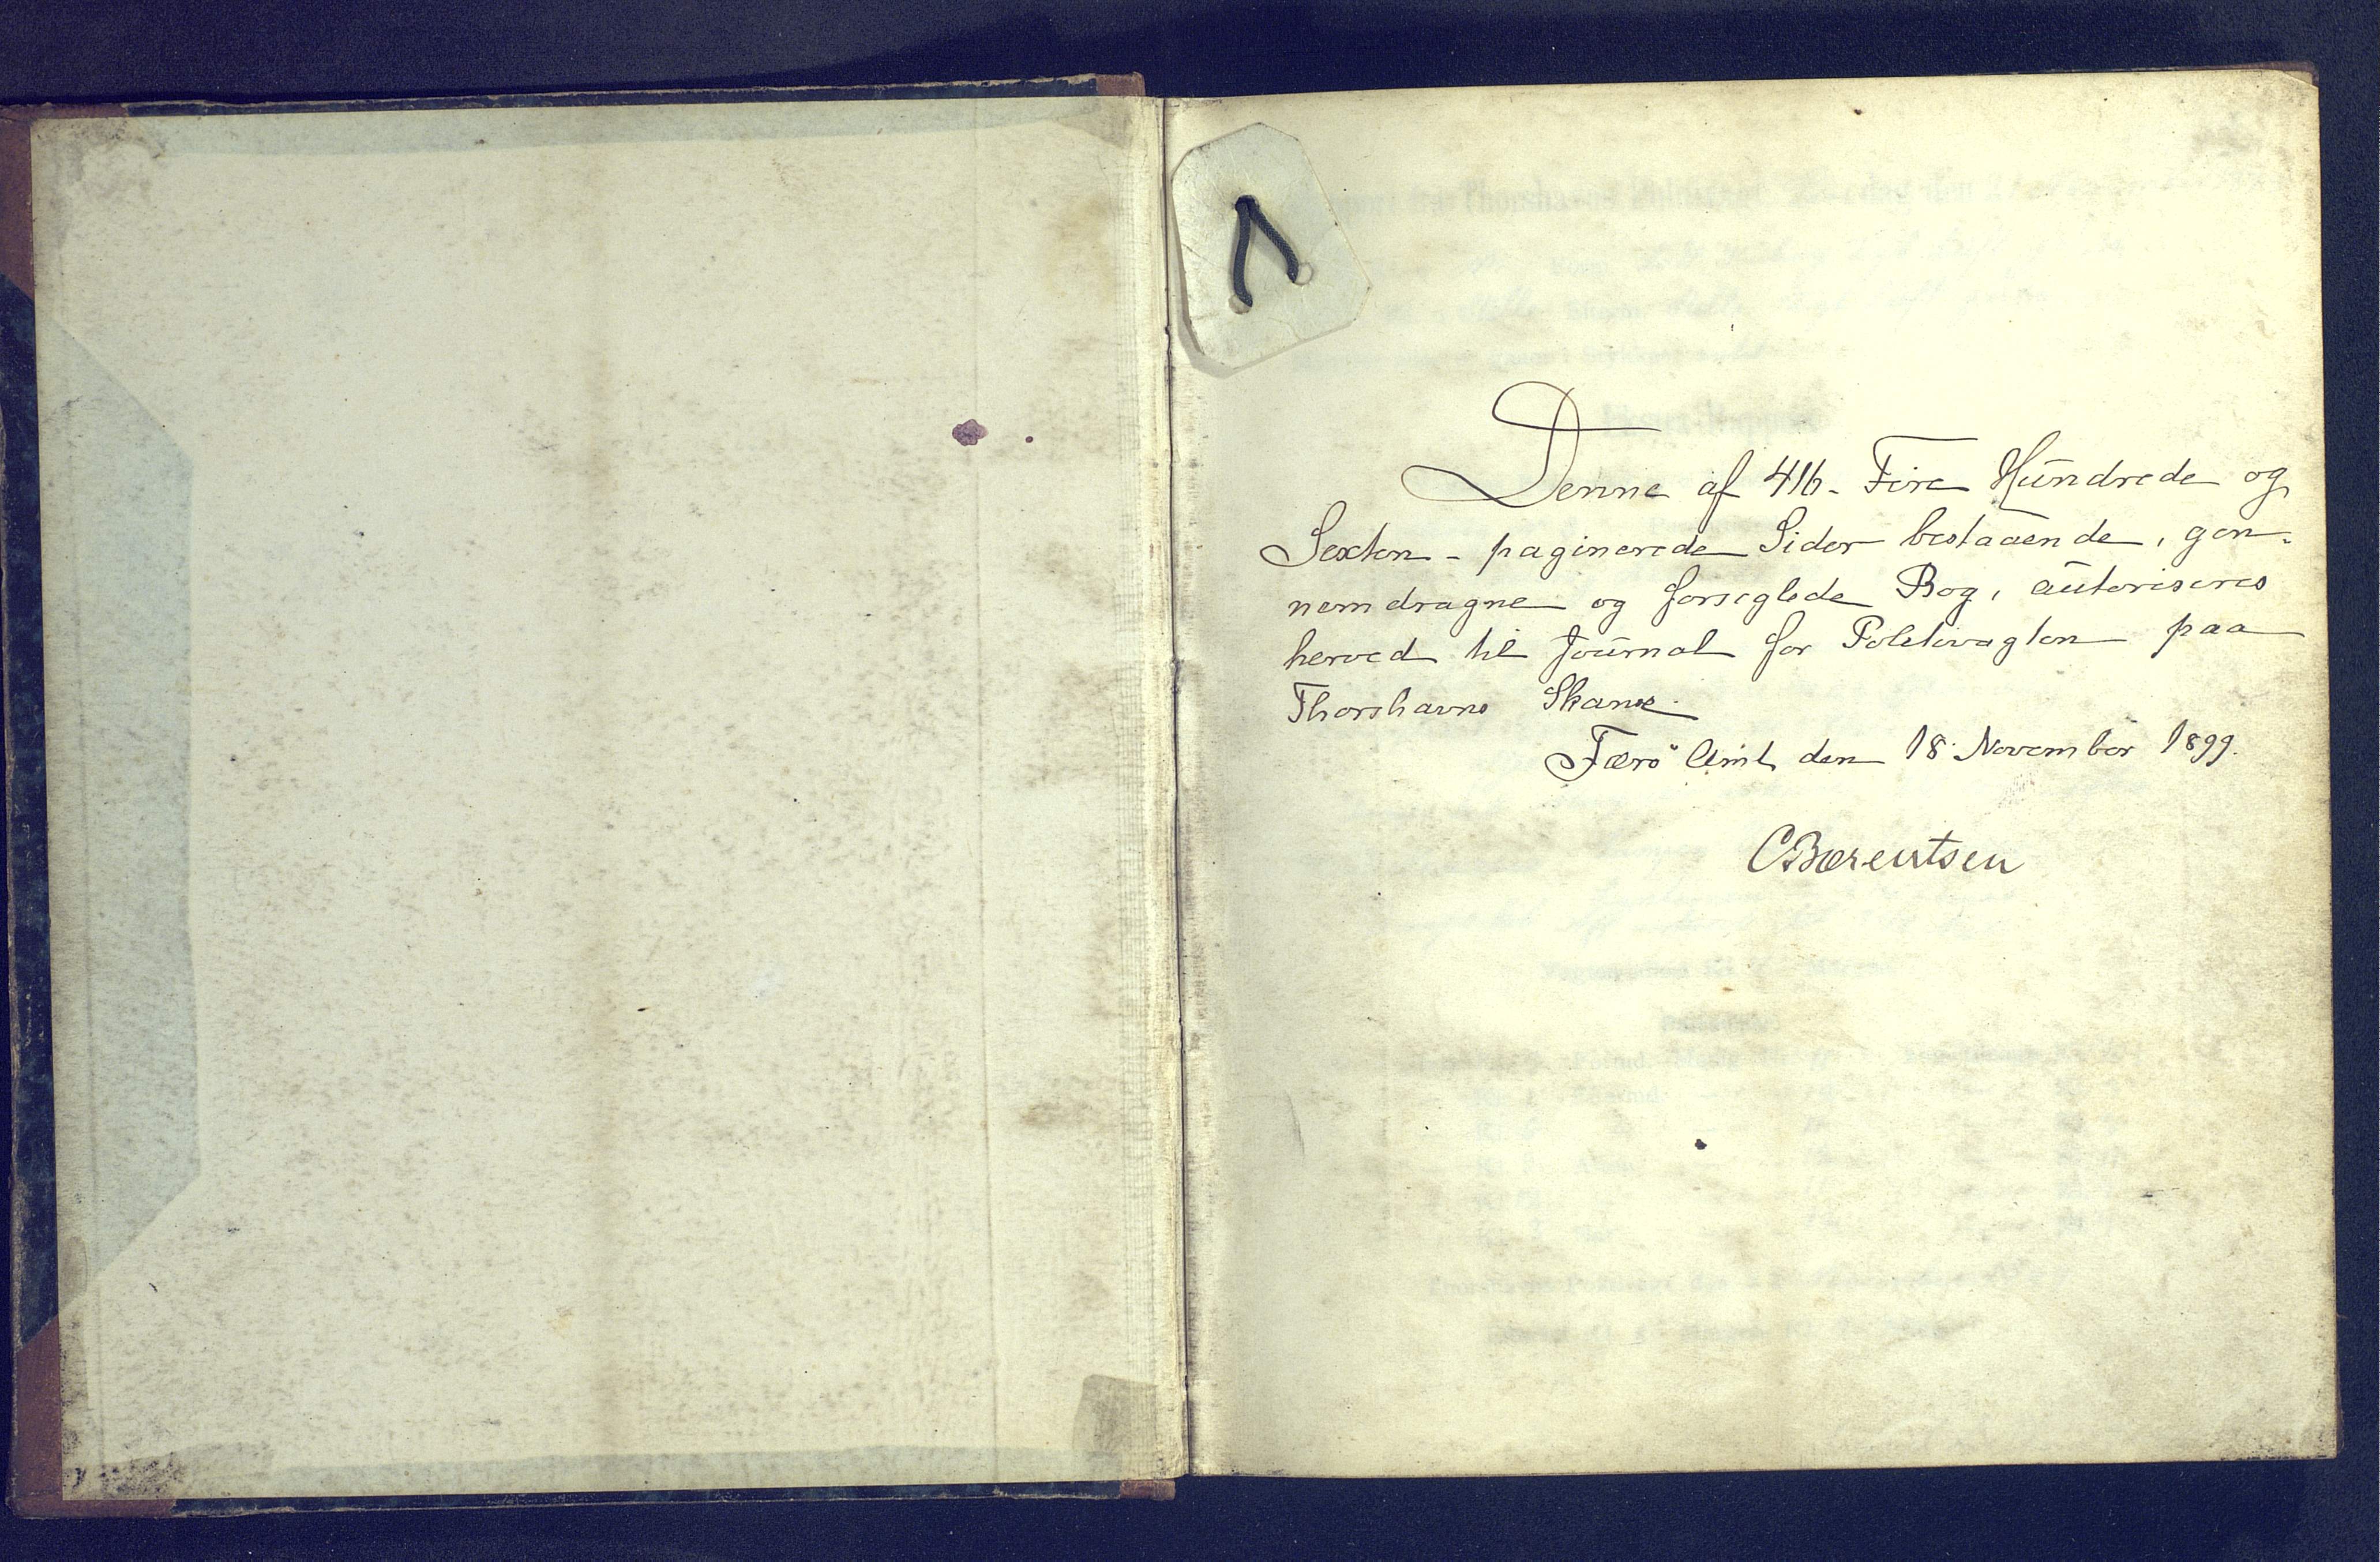 Denne af 416 - Fire Hundrede og
Sexten - paginerede Sider bestaaende, gen-
nemdragne og forseglede Bog, autoriseres
herved til Journal for Politivagten paa
Thorshavns Skanse.
Færö Amt, den 18 November 1899.
CBærentsen